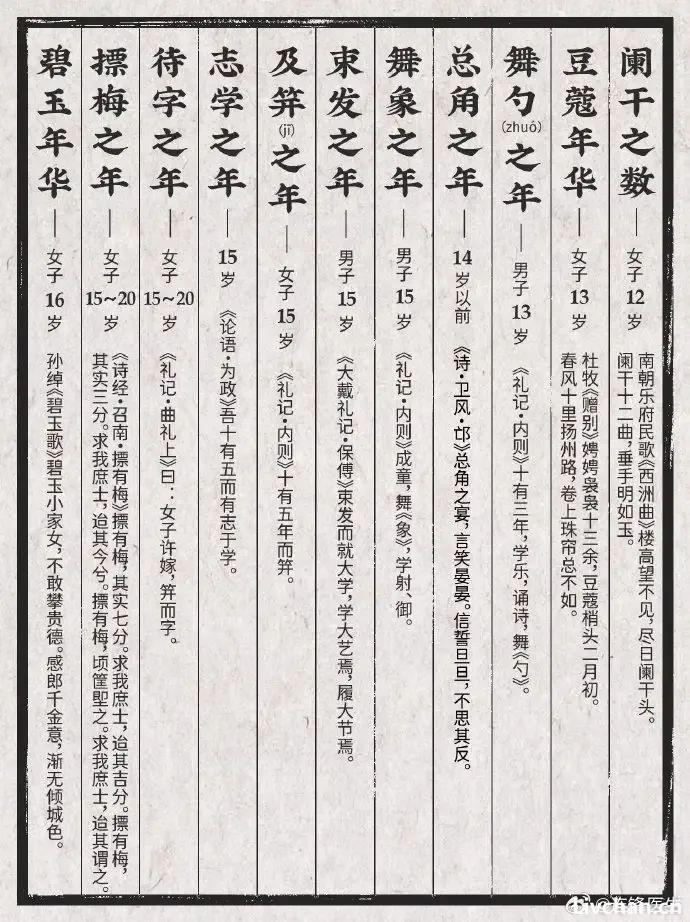 阑干之数——女子12岁
南朝乐府民歌《西洲曲》楼高望不见，尽日阑干头。
阑干十二曲，垂手明如玉。
豆蔻年华——女子13岁
杜牧《赠别》娉娉袅袅十三余，豆蔻梢头二月初。
春风十里扬州路，卷上珠帘总不如。
舞勺(zhuó)之年——男子13岁
《礼记·内则》十有三年，学乐，诵诗，舞《勺》。
总角之年——14岁以前
《诗·卫风·氓》总角之宴，言笑晏晏。信誓旦旦，不思其反。
舞象之年——男子15岁
《礼记·内则》成童，舞《象》，学射、御。
束发之年——男子15岁
《大戴礼记·保傅》束发而就大学，学大艺焉，履大节焉。
及笄(jī)之年——女子15岁
《礼记·内则》十有五年而笄。
志学之年——15岁
《论语·为政》吾十有五而有志于学。
待字之年——女子15~20岁
《礼记·曲礼上》曰：女子许嫁，笄而字。
摽梅之年——女子15~20岁
《诗经·召南·摽有梅》摽有梅，其实七分。求我庶士，迨其吉分。摽有梅，
其实三分。求我庶士，迨其今兮。摽有梅，顷筐塈之。求我庶士，迨其谓之。
碧玉年华——女子16岁
孙绰《碧玉歌》碧玉小家女，不敢攀贵德。感郎千金意，渐无倾城色。